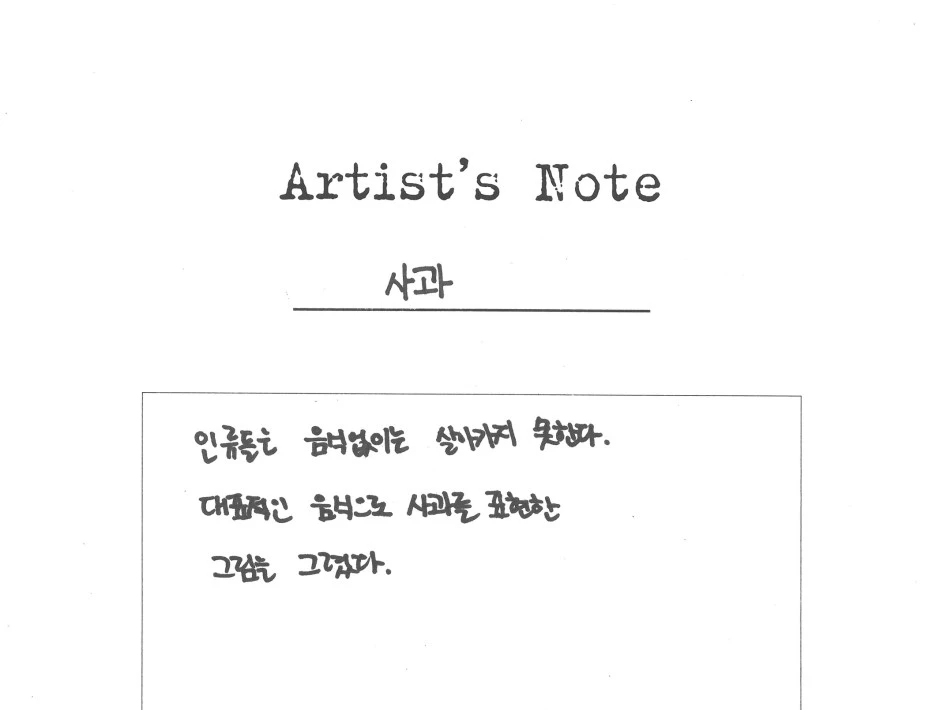 Artist's Note
사과
인류들은 음식없이는 살아가지 못한다.
대표적인 음식으로 사과를 표현한
그림을 그렸다.